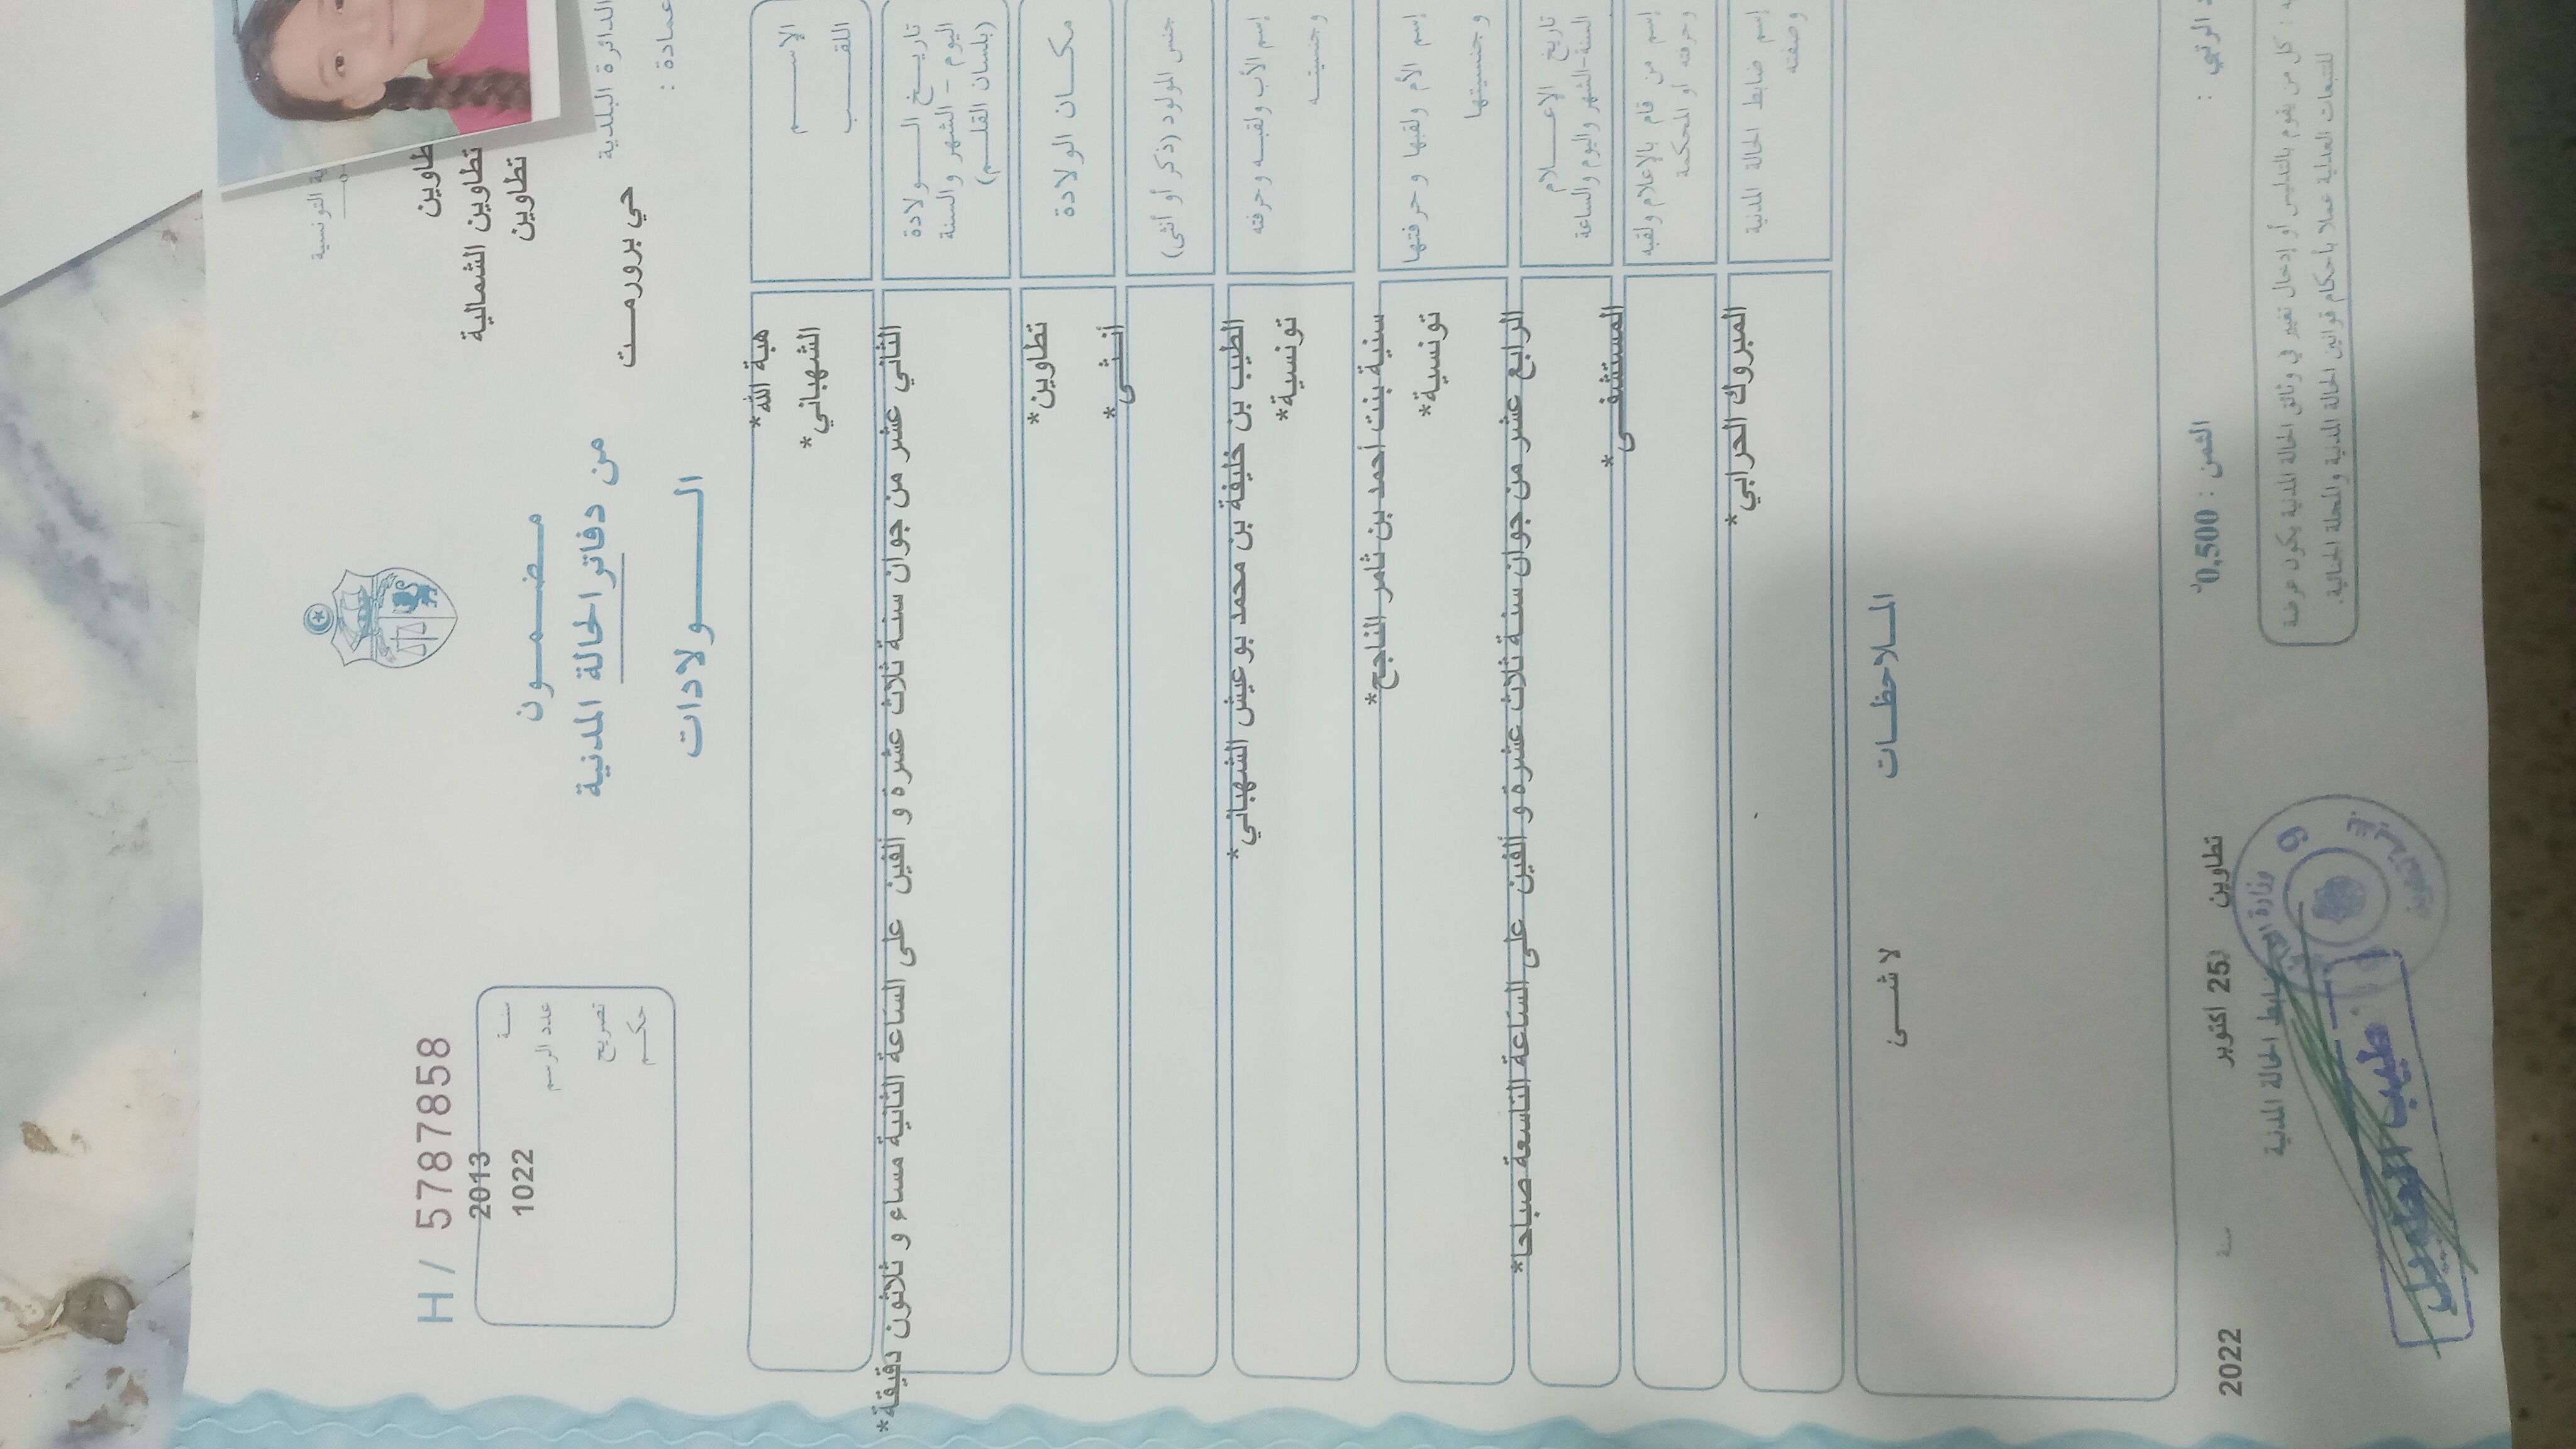 التونسية
تطاوين
تطاوين الشمالية
تطاوين
الدائرة البلدية
حي برورمـــت
عمادة :
مـضـمـــون
من دفاتر الحالة المدنية
الـــــولادات
H/ 5787858
2013 سنـة
1022 عدد الرسم
تصريح
حكـــم
الإســـــم
اللقـــــب
هبة الله*
الشهباني*
تاريــخ الــــولادة
اليوم – الشهر والسنة
(بلسان القلـــم)
الثاني عشر من جوان سنـة ثلاث عشرة و ألفين على الساعة الثانية مساء و ثلاثون دقيقة*
مكــان الولادة
تطاوين*
جنس المولود (ذكر أو أنثى)
أنــثــى*
إسم الأب ولقبـه وحرفته
وجنسيتــه
الطيب بن خليفة بن محمد بوعيش الشهباني*
تونسية*
إسم الأم ولقبها وحرفتها
وجنسيتها
سنية بنت أحمد بن ثامر الناجح*
تونسية*
تاريخ الإعــــلام
السنة-الشهر واليوم والساعة
الرابع عشر من جوان سنـة ثلاث عشرة و ألفين على الساعة التاسعة صباحا*
إسم من قام بالإعلام ولقبه
وحرفته أو المحكمة
المستشفــى*
إسم ضابط الحالة المدنية
وصفته
المبروك الحرابي*
المـلاحظــات
لا شـــئ
الرتبي :
الثمن : 0,500
تطاوين 25 اكتوبر سنة 2022
ضابط الحالة المدنية
كل من يقوم بالتدليس أو إدخال تغيير في وثائق الحالة المدنية يكون عرضة
للتتبعات العدلية عملا بأحكام قوانين الحالة المدنية والمجلة الجنائية.
وزارة
9
طيب الطويل